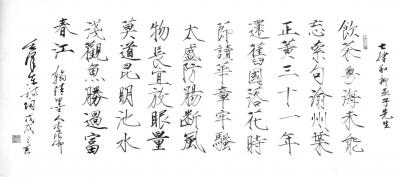 七律和柳亞子先生
飲茶粵海未能
忘索句渝州葉
正黃三十一年
還舊國落花時
節讀華章牢騷
太盛防腸斷風
物長宜放眼量
莫道昆明池水
淺觀魚勝過富
春江
毛澤東詩詞戊戌之春